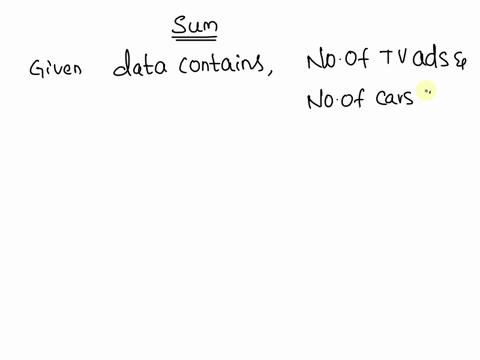 Sum
Given data contains, No. Of TV ads &
No. of cars